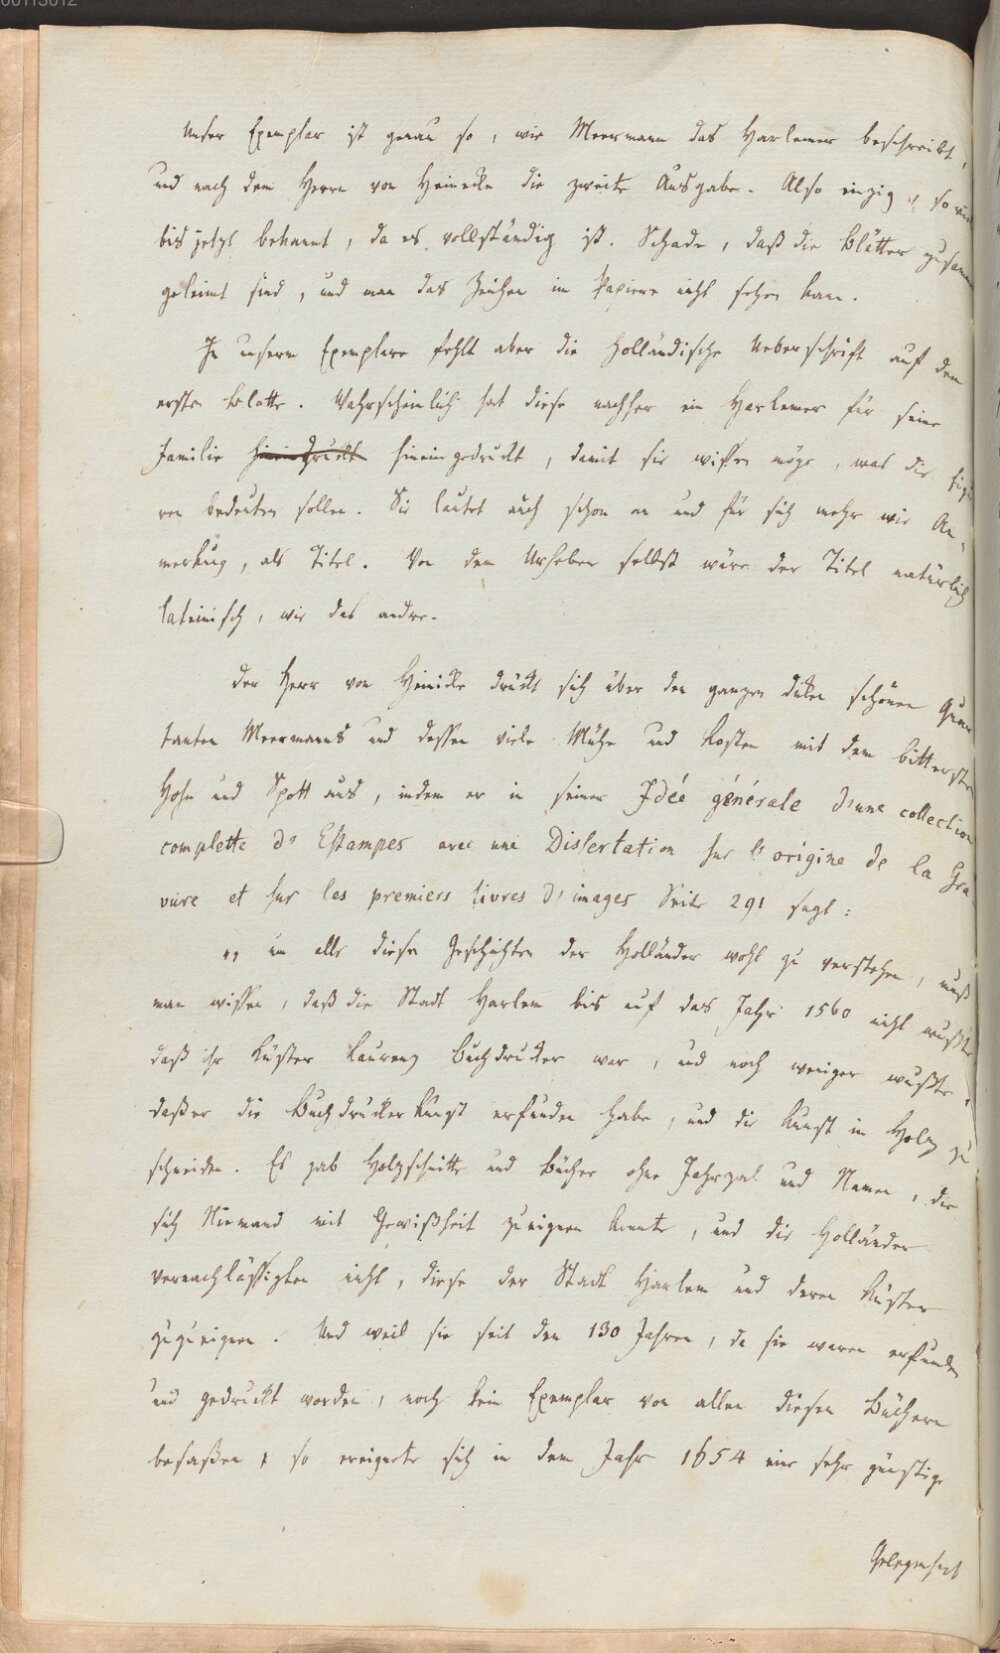 00113012
Unser Exemplar ist genau so, wie Meermann das Harlemer beschreibt,
und nach dem Herrn von Heinecke die zweite Ausgabe. Also einzig, so viel
bis jetzt bekannt, da es vollständig ist. Schade, daß die Blätter zusamm
geleimt sind, und man das Zeichen im Papiere nicht sehen kann.
In unserm Exemplare fehlt aber die Holländische Ueberschrift auf dem
ersten Blatte. Wahrscheinlich hat diese nachher ein Harlemer für seine
Familie hineindruckt hineingedruckt, damit sie wissen möge, was die Figu
ren bedeuten sollen. Sie lautet auch schon an und für sich mehr wie An-
merkung, als Titel. Von dem Urheber selbst wäre der Titel natürlich
lateinisch, wie das andre.
Der Herr von Heinicke drückt sich über den ganzen dicken schönen Quar
tanten Meermanns und dessen viele Mühe und Kosten mit dem bittersten
Hohn und Spott aus, indem er in seiner Idée générale d'une collection
complette d'Estampes avec une Dissertation sur l'origine de la Gra
vure et sur les premiers livres d'images Seite 291 sagt:
„um alle diese Geschichten der Holländer wohl zu verstehen, muß
man wissen, daß die Stadt Harlem bis auf das Jahr 1560 nicht wußte,
daß ihr Küster Laurenz Buchdrucker war, und noch weniger wußte,
daß er die Buchdrucker Kunst erfunden habe, und die Kunst in Holz zu
schneiden. Es gab Holzschnitte und Bücher ohne Jahrzal und Namen, die
sich Niemand mit Gewißheit zueignen konnte, und die Holländer
vernachläßigten nicht, diese der Stadt Harlem und deren Küster
zuzueignen. Und weil sie seit den 130 Jahren, da sie waren erfunden
und gedruckt worden, noch kein Exemplar von allen diesen Büchern
besaßen, so ereignete sich in dem Jahr 1654 eine sehr günstige
Gelegenheit